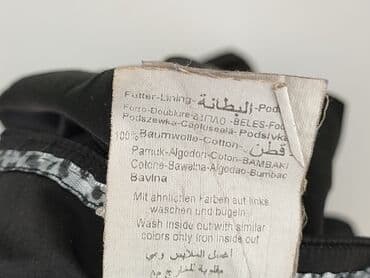 Futter-Lining-البطانة-Pods
Forro-Doublure-ΔΙΠΛΟ-BELES-Fod
Podszewka-Captuseala-Podsivka
100% Baumwolle-Cotton-قطن
Pamuk-Algodon-Coton-BAMBAKI
Cotone-Bawelna-Algodao-Bumbac
Bavlna
Mit ähnlichen Farben auf links
waschen und bügeln
Wash inside out with similar
colors only Iron inside out
اغسل الملابس وهي
مقلوبة للخارج مع